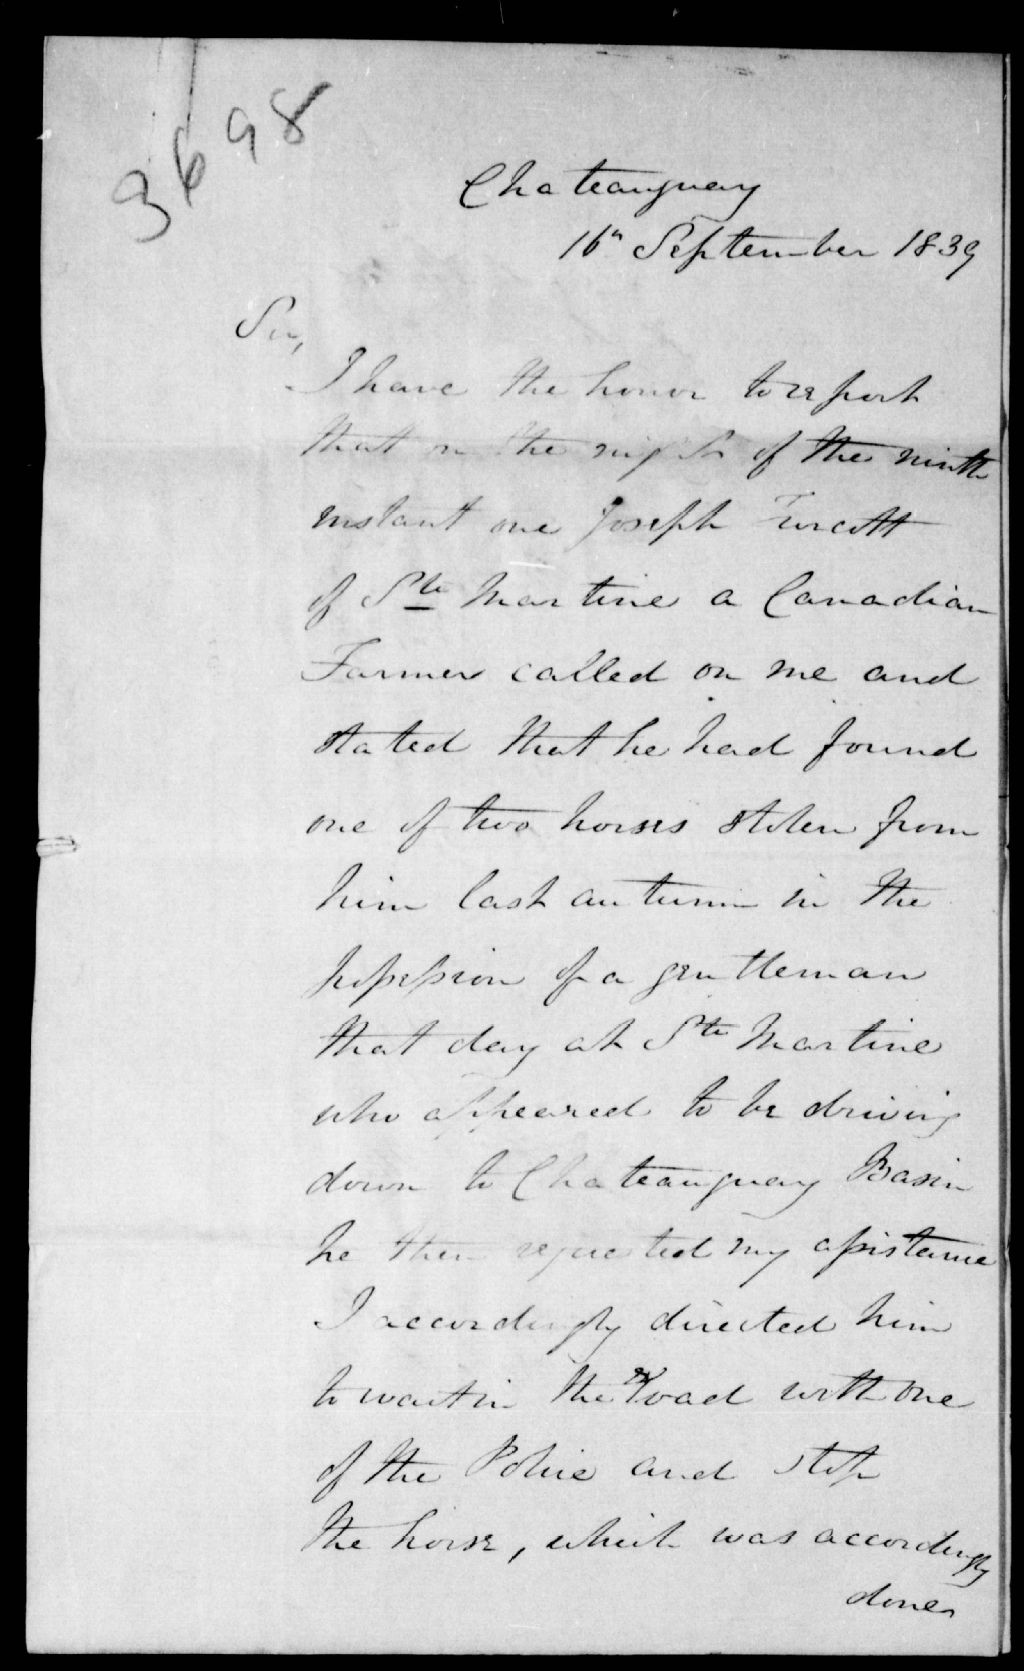 3698
Chateauguay
16th September 1839
Sir,
I have the honor to report
that on the night of the ninth
instant one Joseph Turcott
of Ste Martine a Canadian
Farmer called on me and
stated that he had found
one of two horses stolen from
him last autumn in the
possession of a gentleman
that day at Ste Martine
who appeared to be driving
down to Chateauguay Basin
he then requested my assistance
I accordingly directed him
to wait in the Road with one
of the Police and stop
the horse, which was accordingly
done